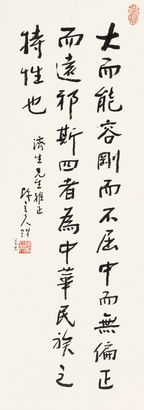 大而能容剛而不屈中而無偏正
而遠邪斯四者為中華民族之
特性也
濟生先生雅正
陳立夫